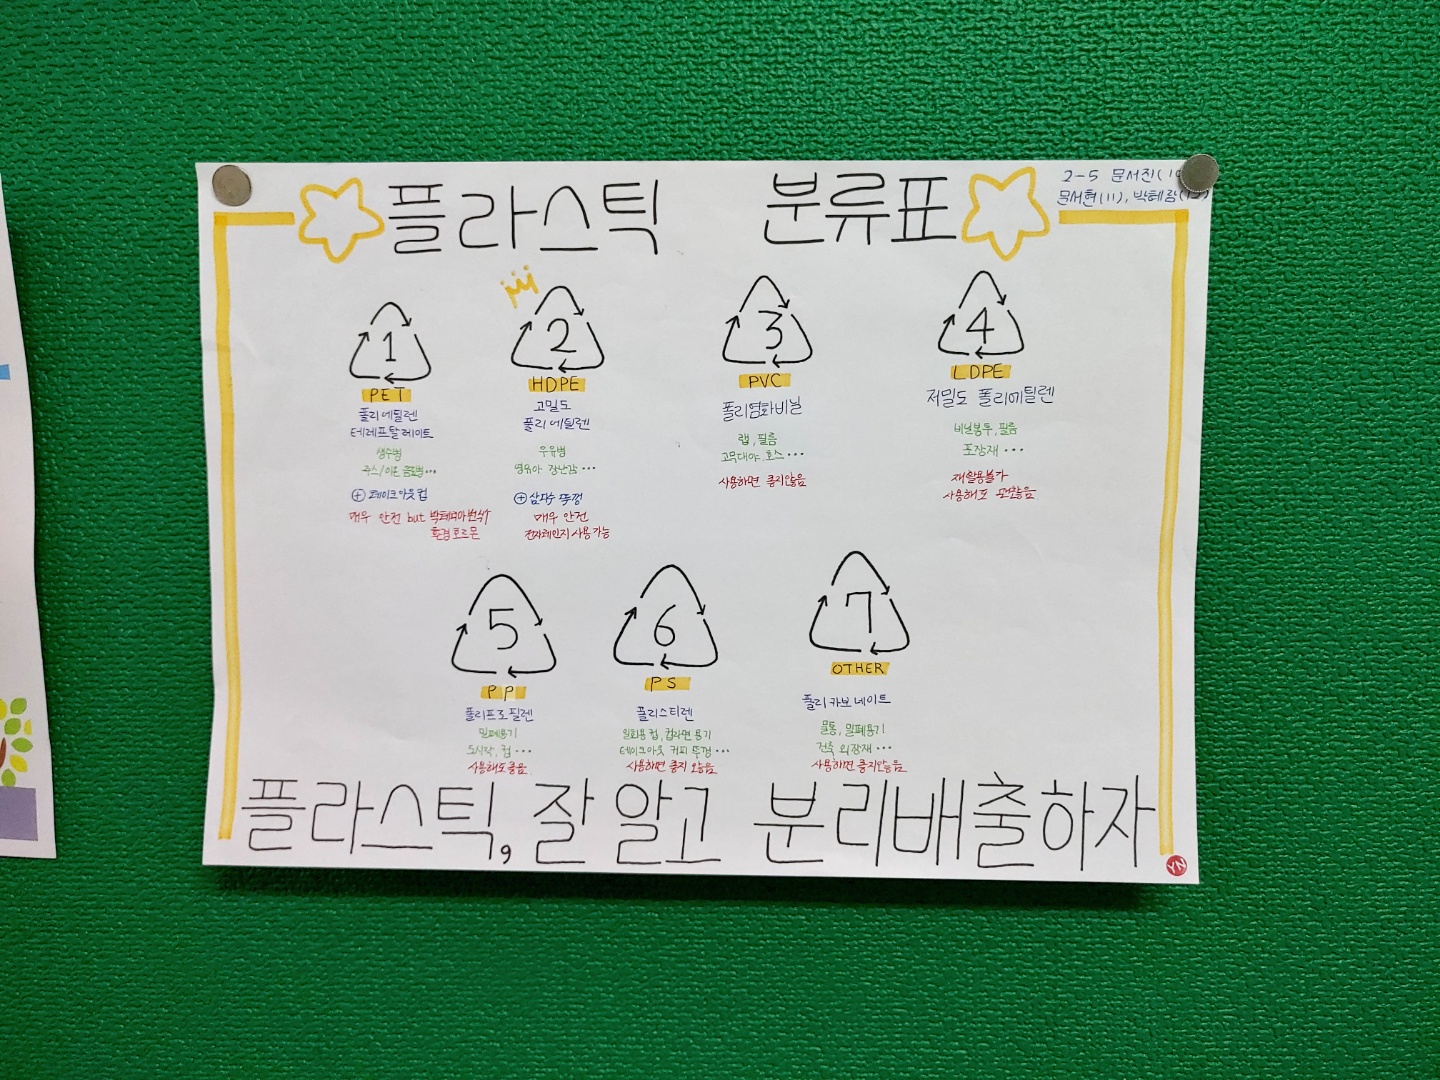 플라스틱 분류표
2-5 문서진
문서현(11), 박혜람
1
PET
폴리에틸렌
테레프탈레이트
생수병
주스/이온 음료병...
+ 테이크아웃 컵
매우 안전 but 박테리아 번식↑
환경호르몬
2
HDPE
고밀도
폴리에틸렌
우유병
영유아 장난감...
+ 삼다수 뚜껑
매우 안전
전자레인지 사용 가능
3
PVC
폴리염화비닐
랩, 필름
고무대야, 호스...
사용하면 좋지않음
4
LDPE
저밀도 폴리에틸렌
비닐봉투, 필름
포장재...
재활용불가
사용해도 괜찮음
5
PP
폴리프로필렌
밀폐용기
도시락, 컵...
사용해도 좋음
6
PS
폴리스티렌
일회용컵, 컵라면 용기
테이크아웃 커피 뚜껑...
사용하면 좋지 않음
7
OTHER
폴리카보네이트
물통, 밀폐용기
건축 외장재...
사용하면 좋지않음
플라스틱, 잘 알고 분리배출하자
YN